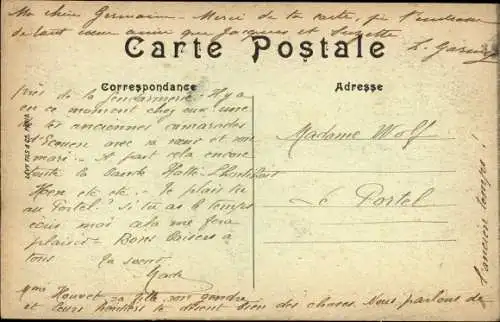 Ma chère Germaine - Merci de ta carte, je t'embrasse
de tout cœur ainsi que Jacques et Suzette
L.
Carte Postale
Correspondance
Adresse
près de la gendarmerie. Il y a
en ce moment chez eux une
de tes anciennes camarades
d'Ecouen avec sa sœur et son
mari - A part cela encore
toute la bande Halte
Hou etc etc - Te plais tu
au Portel ? Si tu as le temps
écris moi cela me fera
plaisir - Bons baisers à
tous
Ta sœur
Madame Wolf
Le Portel
Houvet sa fille son gendre
et leurs te disent bien des choses. Nous parlons de
l'ancien temps !